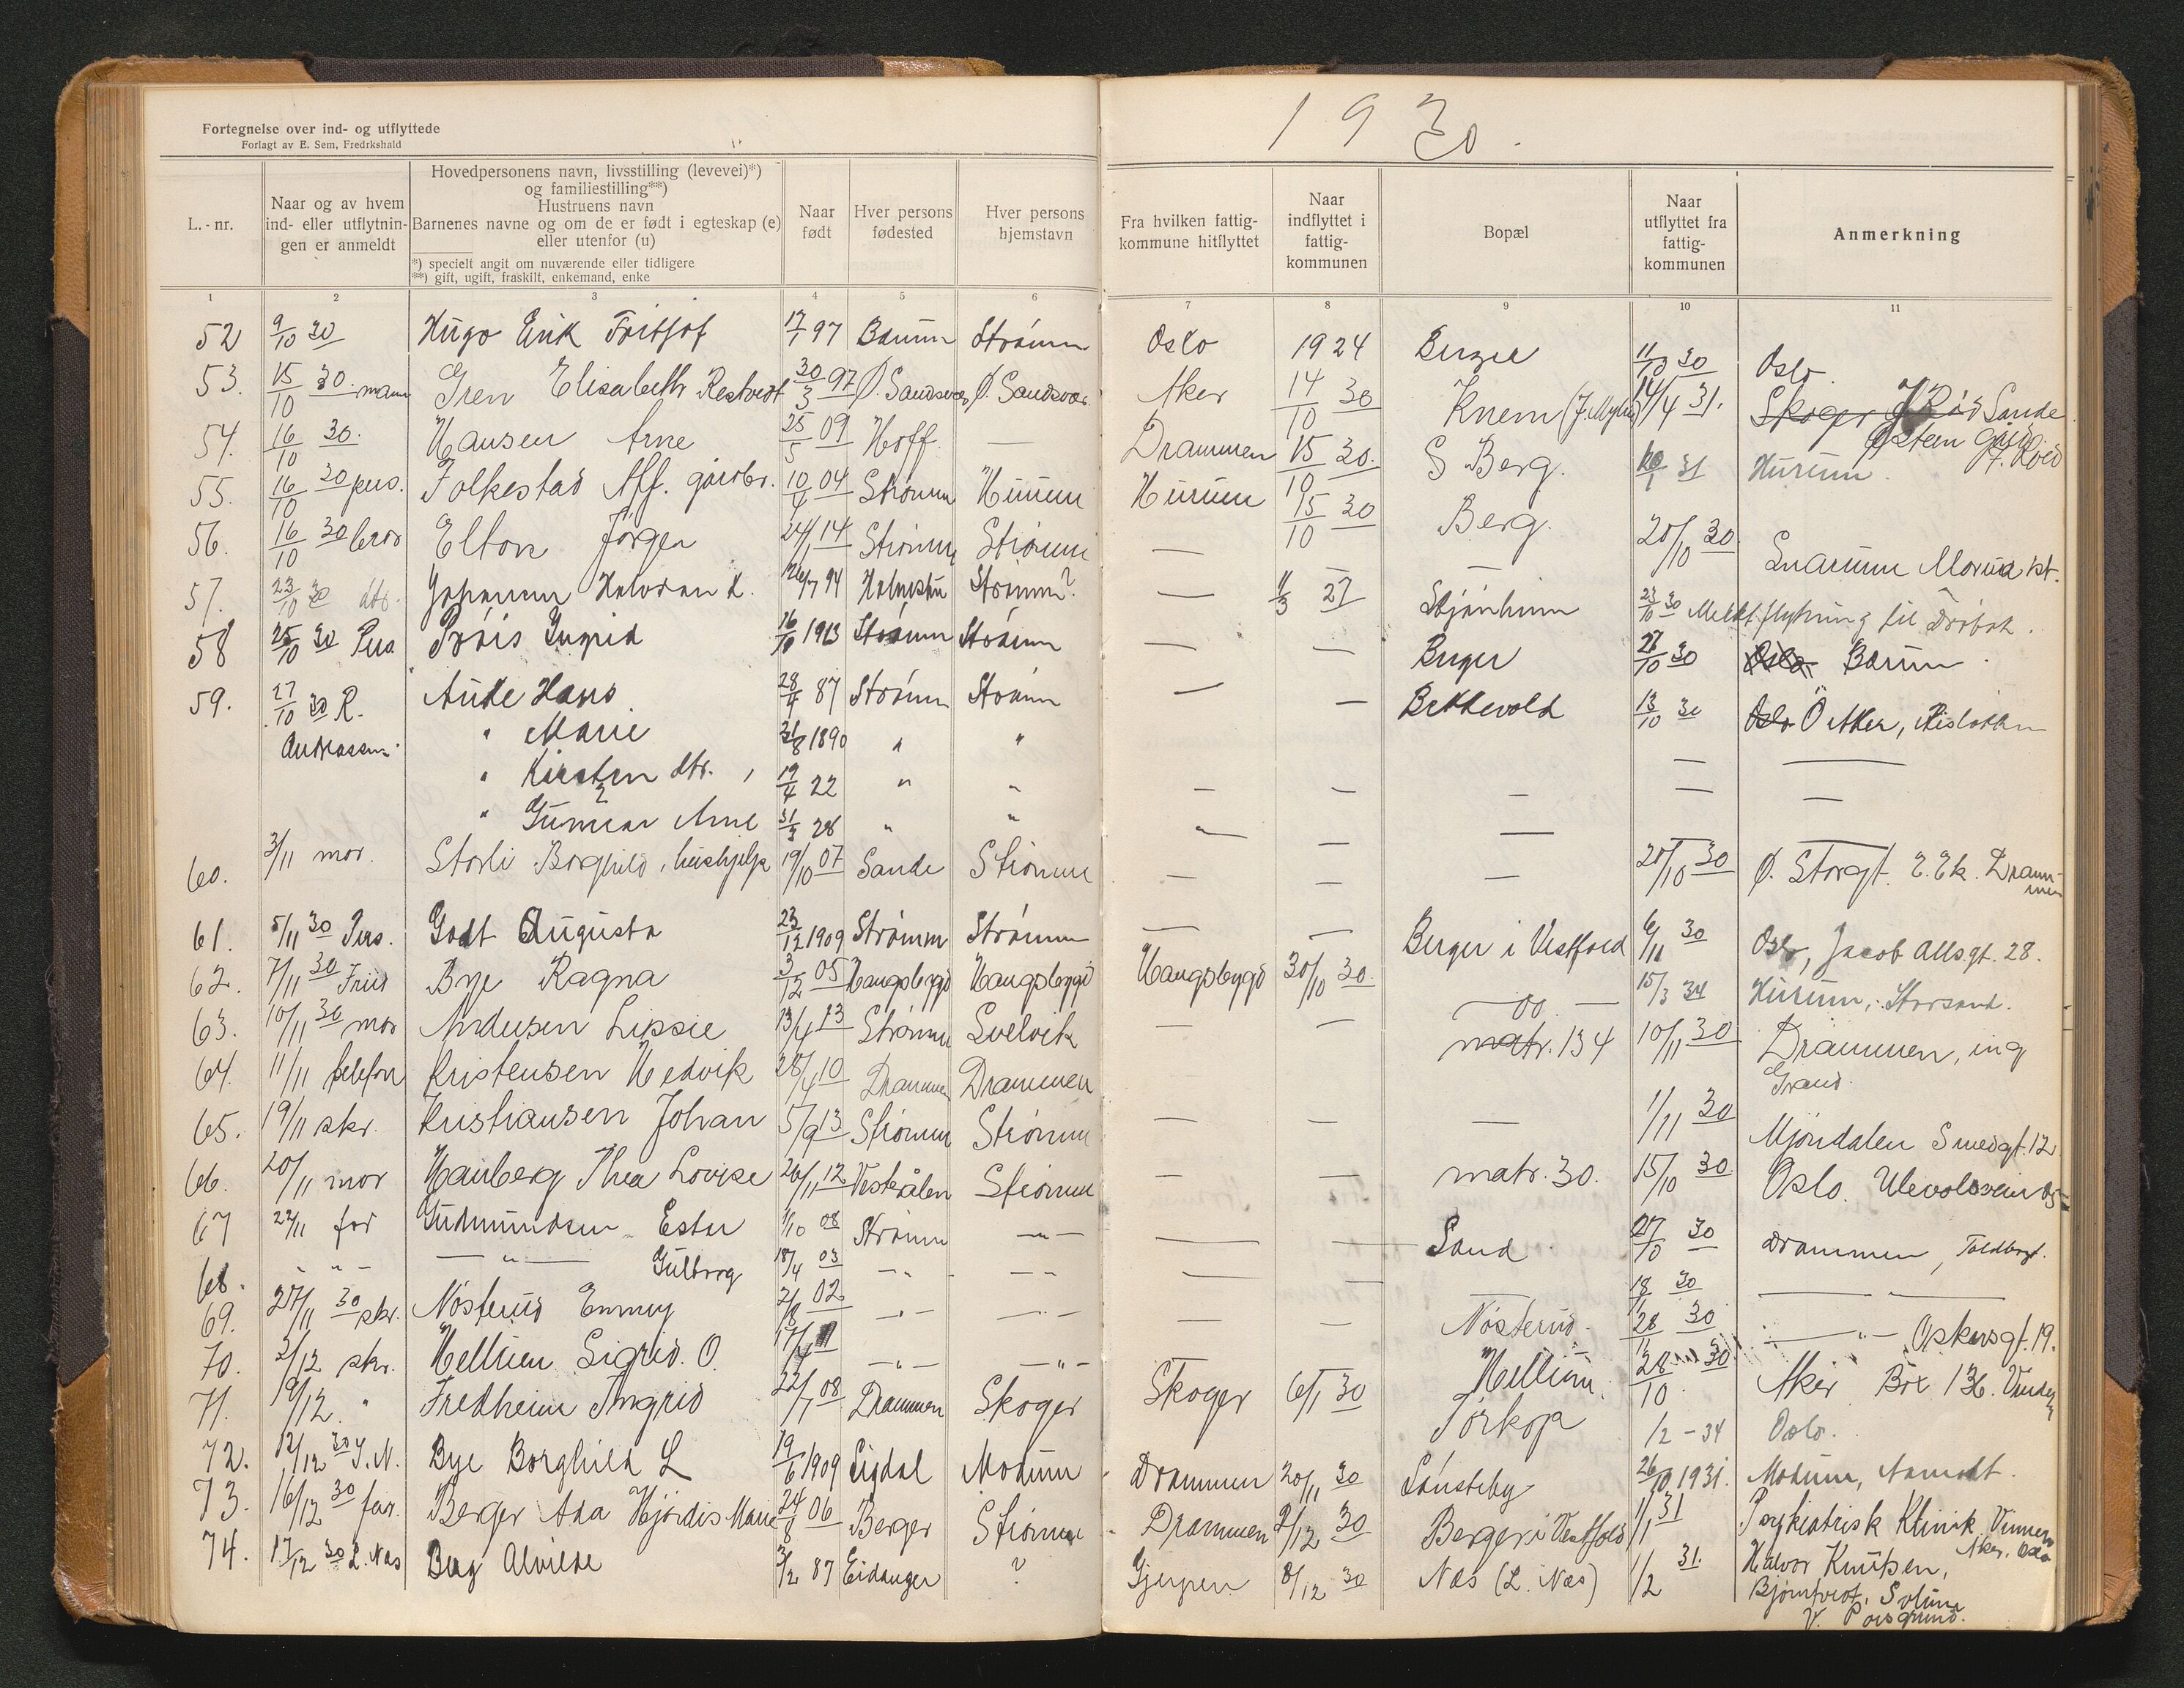 Fortegnelse over ind- og utflyttede
Forlagt av E. Sem, Fredrkshald
1930.
L.-nr.
Naar og av hvem ind- eller utflytnin- gen er anmeldt
Hovedpersonens navn, livsstilling (levevei)*)
og familiestilling**)
Hustruens navn
Barnenes navne og om de er født i egteskap (e)
eller utenfor (u)
*) specielt angit om nuværende eller tidligere
**) gift, ugift, fraskilt, enkemand, enke
Naar født
Hver persons fødested
Hver persons hjemstavn
Fra hvilken fattig- kommune hitflyttet
Naar indflyttet i fattig- kommunen
Bopæl
Naar utflyttet fra fattig- kommunen
Anmerkning
1 2 3 4 5 6 7 8 9 10 11
52 9/10 30 Hugo Erik Fritjof 17/1 97 Strømm Oslo 1924 Berger 11/10 30 Oslo
53. 15/10 30 mann Gren Elisabeth 30/3 97 Ø. Sandsvær Ø. Sandsvær Aker 14/10 30 Knem 14/4 31. Skoger Sande
54. 16/10 30. Hansen Arne 25/5 09 Hoff — Drammen 15/10 30. S Berg. 31 Hurum.
55. 16/10 30 pers. Folkestad Alf. gårdbr. 10/4 04 Strømm Hurum Hurum 15/10 30 Berg.
56. 16/10 30 bror Elton Jørgen 24/1 14 Strømm Strømm — 20/10 30 Snarum st.
57. 23/10 30 dtr. Halvdan 94 Strømm? — 11/3 27 23/10 30 Meldt flytning til Drøbak.
58 25/10 30 Pers Ingrid 16/10 1913 Strømm Strømm — — Berger 27/10 30 Oslo Bærum
59. 27/10 30 R. Aude Hans 28/4 87 Strømm Strømm — — Bekkevold 13/10 30 Oslo Ö Aker,
Andreassen " Marie 31/8 1890 " " — —
" Kirsten dtr. 19/4 22 " " — — — — —
" Gunnar Arne 31/3 28 " " — — —
60. 3/11 mor. Storli Borghild, hushjelp 19/10 07 Sande Strømm — — — 20/10 30 Ø. Storgt. E. Ek. Drammen
61. 5/11 30 Pers. Godt Augusta 23/12 1909 Strømm Strømm — — Berger i Vestfold 6/11 30 Oslo, Jacob Alls.gt. 28.
62. 7/11 30 Bye Ragna 3/12 05 Haugsbygd Haugsbygd Haugsbygd 30/10 30. — 15/3 34 Hurum, Storsand.
63. 10/11 30 mor Andersen Lissie 13/4 13 Strømm Svelvik — — matr. 134 10/11 30 Drammen, ing
64. 11/11 telefon Kristensen Hedvik 28/4 10 Drammen Drammen Grand.
65. 19/11 skr. Kristiansen Johan 5/9 13 Strømm Strømm — — — 1/11 30 Mjøndalen Smedgt. 12
66. 20/11 mor Hauberg Thea Lovise 26/11 12 Vesterålen Strømm — — matr. 30. 15/10 30 Oslo. Ulevolsveien
67 22/11 far Gudmundsen Ester 1/10 08 Strømm —"— — — Sand 27/10 30 Drammen, Toldbugt.
68. —"— —"— Gulborg 18/4 03 —"— —"— — — 18/11 30 —
69. 27/11 30 skr. Nøsterud Emmy 2/8 02 —"— —"— — — Nøsterud. 28/11 30 —"— Oskersgt. 19.
70. 2/12 skr. Hellum Sigrid. O. —"— —"— — Hellum. 28/10 30 Aker Box 136. Vinderen
71. 19/12. " Fredheim Ingrid 22/7 08 Drammen Skoger Skoger 6/1 30 Tørkop 1/2 – 34 Oslo.
72. 12/12 30 J. N. Bye Borghild L 19/6 1909 Sigdal Modum Drammen 20/11 30 Lønsteby 26/10 1931. Modum, Aamodt.
73. 16/12 30 far. Berger Ada Hjørdis Marie 24/8 06 Berger Strømm Drammen 2/12 30 Berger i Vestfold 1/1 31 Psykiatrisk Klinik Vinderen
Aker. Oslo
74. 17/12 30 L. Næs Berg Alvilde 3/12 87 Eidanger ? Gjerpen 8/12 30 Næs (L. Næs) 1/2 31. Halvor Knutsen,
Bjørntvedt, Solum
V. Porsgrund.